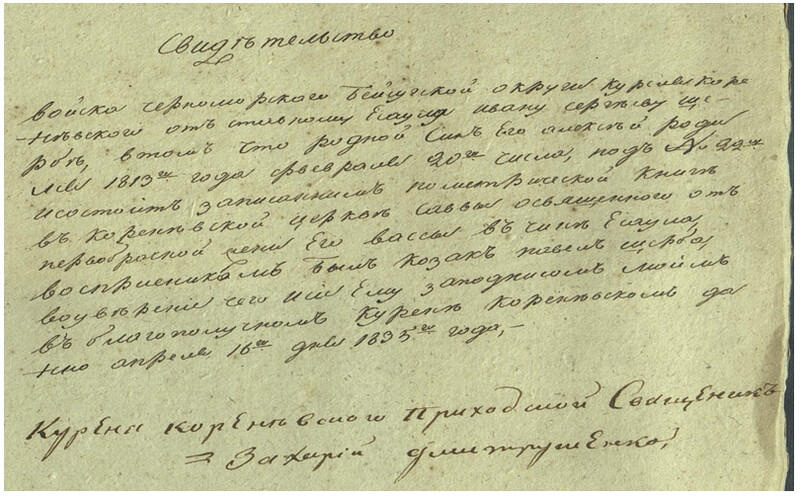 Свидѣтельство
войска черноморского Бейсугской округи куреня коре
нѣвской отъставному Есаулу ивану сергѣеву ще
рбѣ, втомъ что родной Синъ Его алексѣй роди
лся 1813го года февраля 20го числа, подъ № 22мъ
исостоитъ записаннымъ пометрической книгѣ
въ коренѣвской церквѣ саввы освященного отъ
первобрасной жени Его вассы въ чинѣ Есаула,
воспрiемникомъ былъ козакъ павелъ щерба,
воувѣренiе чего исiе Ему заподписомъ моимъ
въ благополучномъ Куренѣ коренѣвскомъ да
нно апреля 16го дня 1835го года,-
Курена коренѣвского приходской Священикъ
= Захарiй дмитрушенко,